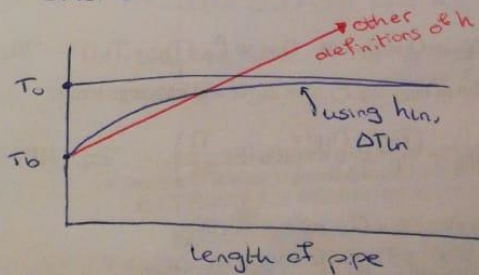 other
definitions of h
To
using hln,
ΔTln
Tb
length of pipe